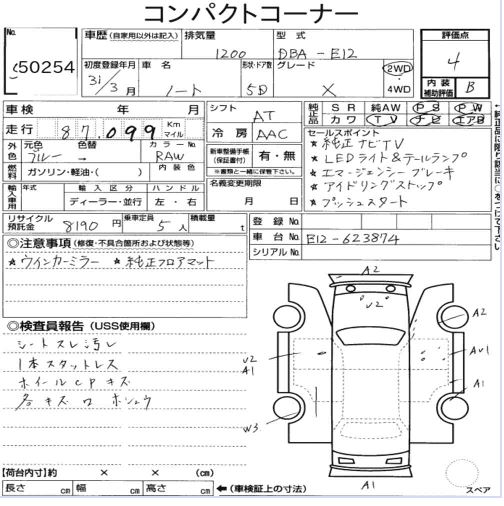 コンパクトコーナー
No. 50254
車歴 (自家用以外は記入) 排気量 1200 型式 DBA-E12 評価点 4
初度登録年月 31年/3月 車名 ノート 形状・ドア数 5D グレード X 2WD・4WD 内装補助評価 B
車検 年 月 シフト AT 純正品 SR 純AW PS PW
カワ TV ナビ エアB
走行 87,099 Km マイル 冷房 AAC
外色 元色 ブルー 色替 → カラーNo. RAW
燃料 ガソリン・軽油・( ) 内装色
新車整備手帳(保証書付) 有・無
※書類と一緒に保管下さい。
セールスポイント
★純正ナビTV
★LEDライト&テールランプ
★エマージェンシーブレーキ
★アイドリングストップ
★プッシュスタート
輸入車 年式 輸入区分 ディーラー・並行 ハンドル 左・右
名義変更期限 月 日
リサイクル預託金 8190円 乗車定員 5人 積載量 t
登録No.
車台No. E12-623874
シリアルNo.
◎注意事項(修復・不具合箇所および状態等)
★ウインカーミラー ★純正フロアマット
◎検査員報告(USS使用欄)
シートスレ汚レ
1本スタットレス
ホイールCPキズ
各キズ
A2
V2
A2
V2
A1
AV1
A1
W3
A1
スペア
【荷台内寸】約 × × (cm)
長さ cm 幅 cm 高さ cm ←(車検証上の寸法)